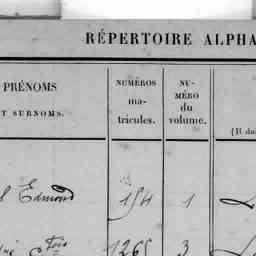 RÉPERTOIRE ALPHA
PRÉNOMS
T SURNOMS.
NUMÉROS
ma-
tricules.
NU-
MÉRO
du
volume.
(Il doi
Edmond 154 1
1265 3